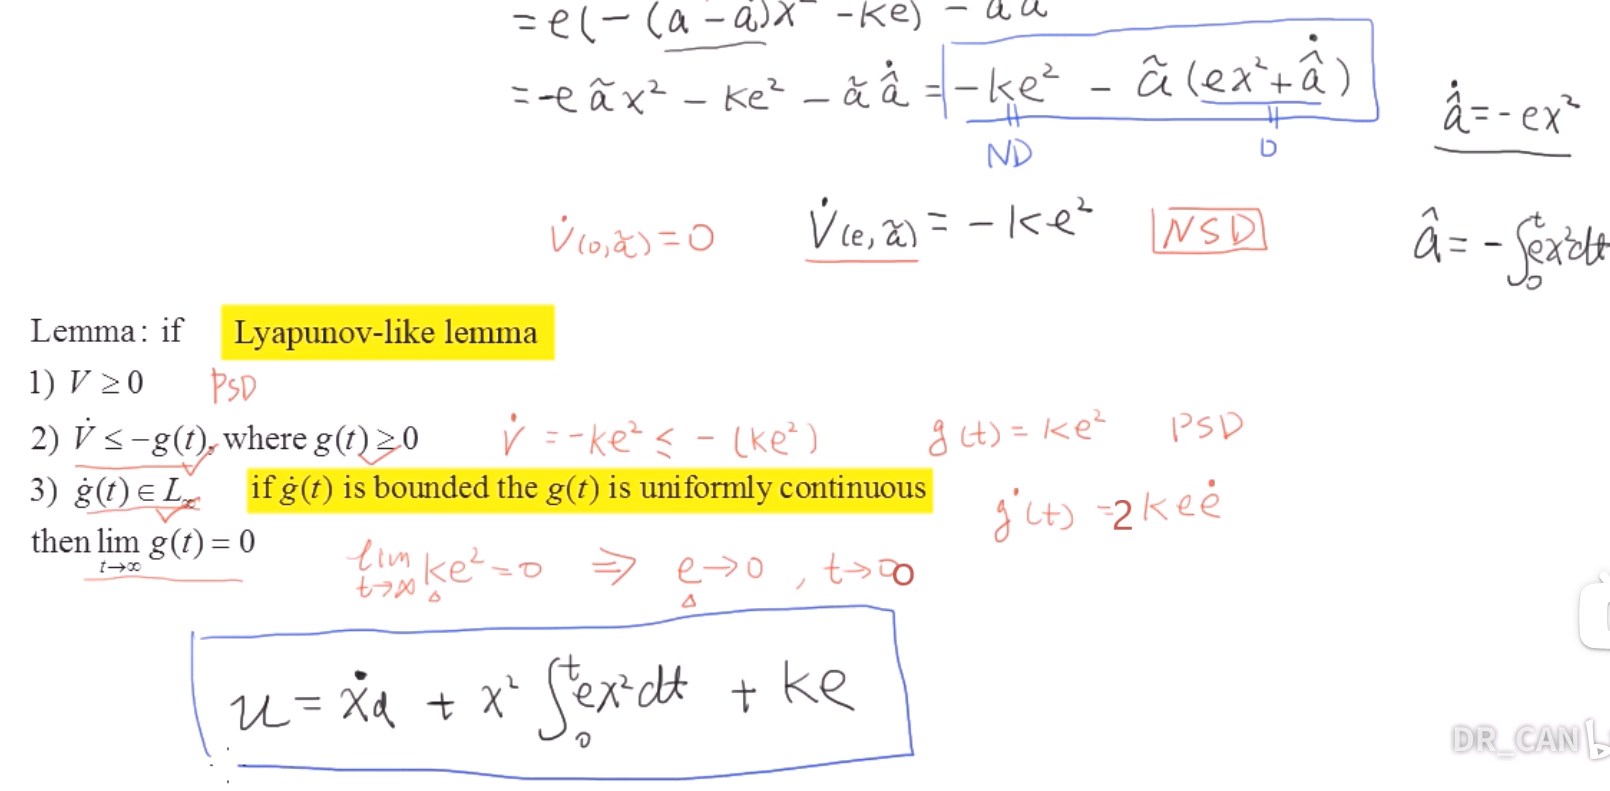 = e(-(a-â)x² -ke) - ã â̇
= -e ã x² - ke² - ã â̇ = -ke² - ã (ex² + â̇)
â̇ = -ex²
ND
0
V̇(0,ã) = 0
V̇(e,ã) = -ke²
NSD
â = -∫₀ᵗ ex²dt
Lemma: if Lyapunov-like lemma
1) V ≥ 0 PSD
2) V̇ ≤ -g(t), where g(t) ≥ 0 V̇ = -ke² ≤ -(ke²) g(t) = ke² PSD
3) ġ(t) ∈ L∞ if ġ(t) is bounded the g(t) is uniformly continuous ġ(t) = 2keė
then lim t→∞ g(t) = 0 lim t→∞ ke² = 0 ⇒ e→0, t→∞
u = ẋd + x² ∫₀ᵗ ex²dt + ke
DR_CAN